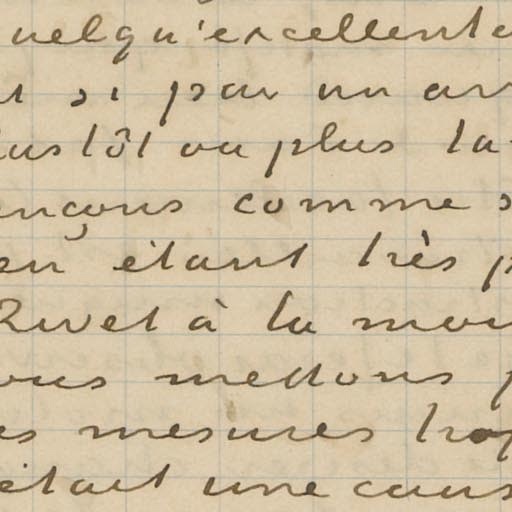 uelqu'excellente
et si par un ar
lustôt ou plus ta
ençons comme s
en étant très p
Rivet à la moi
ous mettons p
es mesures trop
était une caus